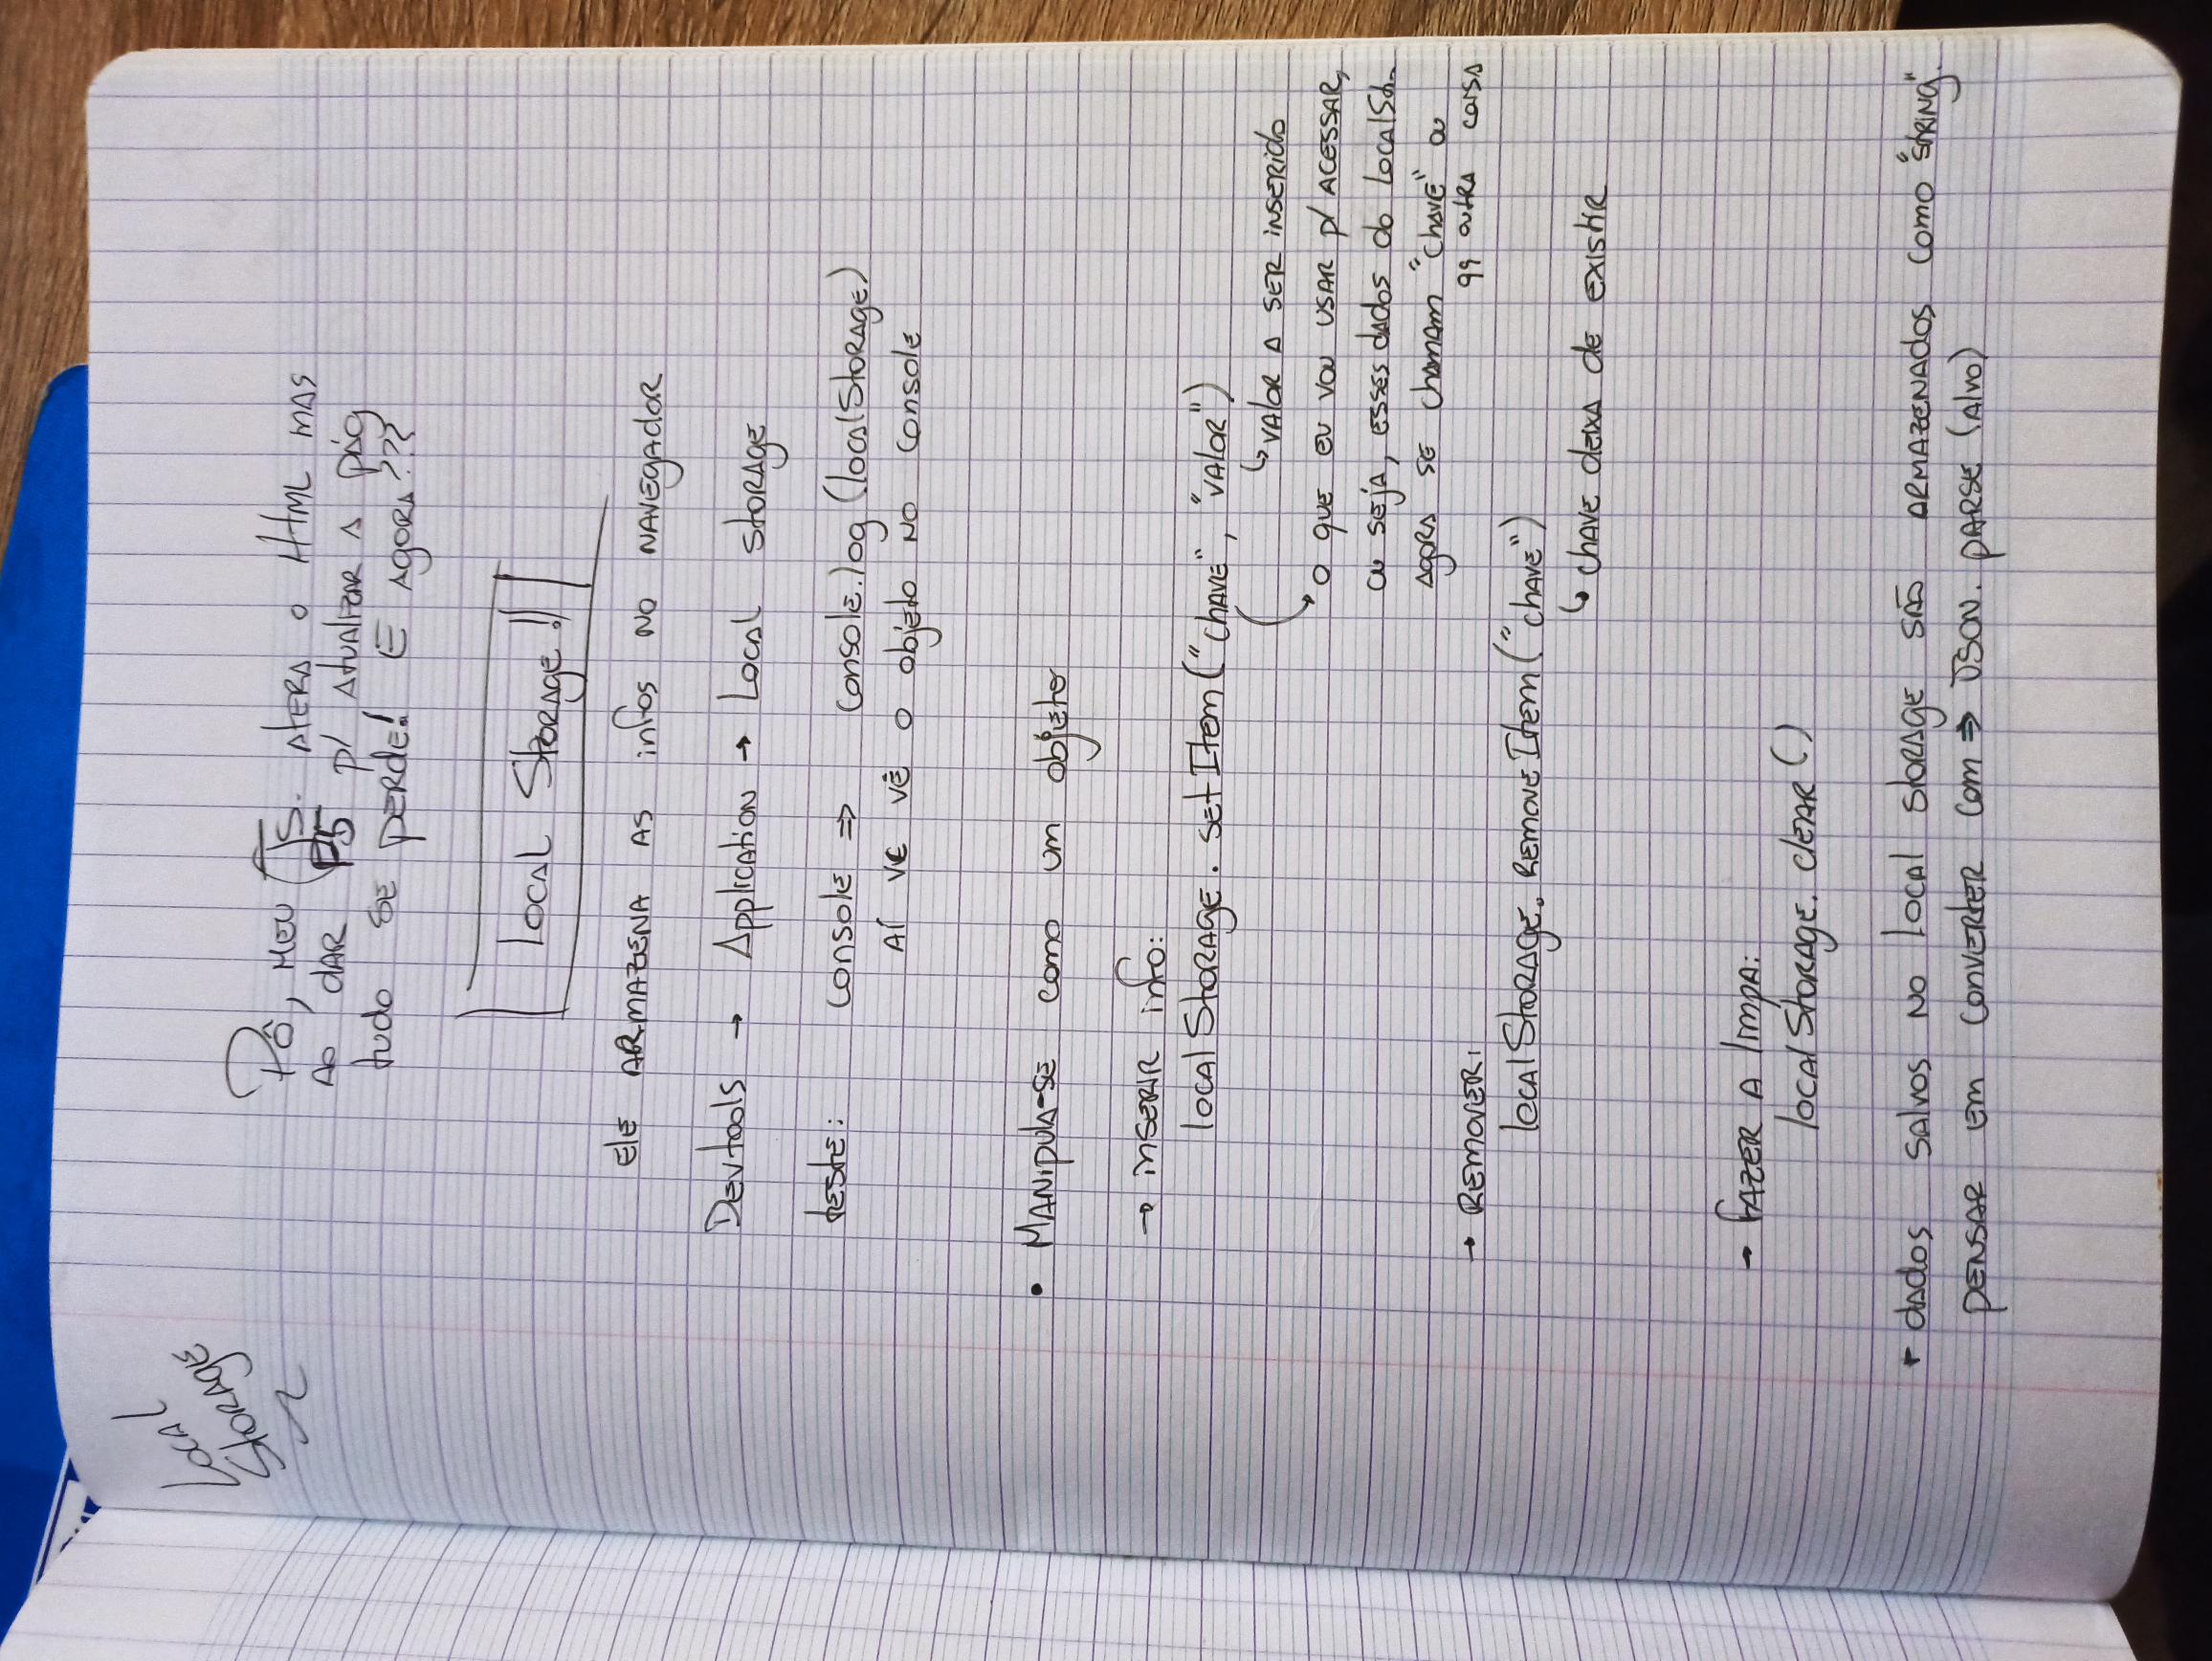 Local
Storage
Pô, meu JS. atera o Html mas
ao dar F5 p/ atualizar a pág
tudo se perde! E agora???
Local Storage!!
Ele armazena as infos no navegador
Devtools → Application → Local storage
teste: console ⇒ console.log (localStorage)
aí vc vê o objeto no console
• Manipula-se como um objeto
→ inserir info:
localStorage. setItem ("chave", "valor")
↳ valor a ser inserido
o que eu vou usar p/ acessar,
ou seja, esses dados do LocalSto.
agora se chamam "chave" ou
qq outra coisa
→ Remover:
localStorage. removeItem ("chave")
↳ chave deixa de existir
→ fazer a limpa:
localStorage. clear ()
• dados salvos no local storage são armazenados como "string".
pensar em converter com ⇒ JSON. parse (alvo)